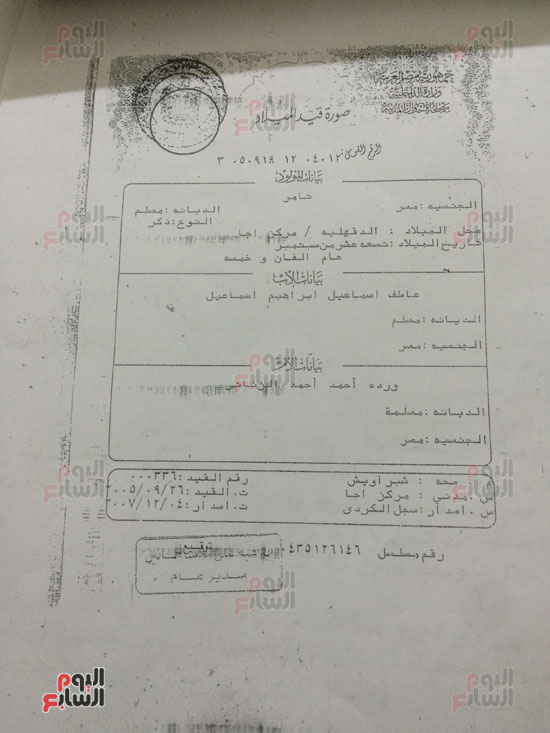 جمهورية مصر العربية
وزارة الداخلية
صورة قيد الميلاد
الرقم القومى: ٣ ٠٥٠٩١٩ ١٢ ٠٤٠١٢
بيانات المولود
تامر
الجنسيه: مصر الديانه: مسلم
النوع: ذكر
محل الميلاد : الدقهليه / مركز اجا
تاريخ الميلاد: تسعه عشر من سبتمبر
عام الفان و خمسه
بيانات الأب
عاطف اسماعيل ابراهيم اسماعيل
الديانه: مسلم
الجنسيه: مصر
بيانات الأم
ورده أحمد أحمد
الديانه: مسلمة
الجنسيه: مصر
صحه : شبراويش رقم القيد: ٠٠٠٣٣٦
س. مدني: مركز اجا ت. القيد: ٢٠٠٥/٠٩/٢٦
س. اصدار: سجل الكردى ت. اصدار: ٢٠٠٧/١٢/٠٤
رقم مسلسل ٠٤٣٥١٢٦١٤٦
توقيع
مدير عام
اليوم السابع